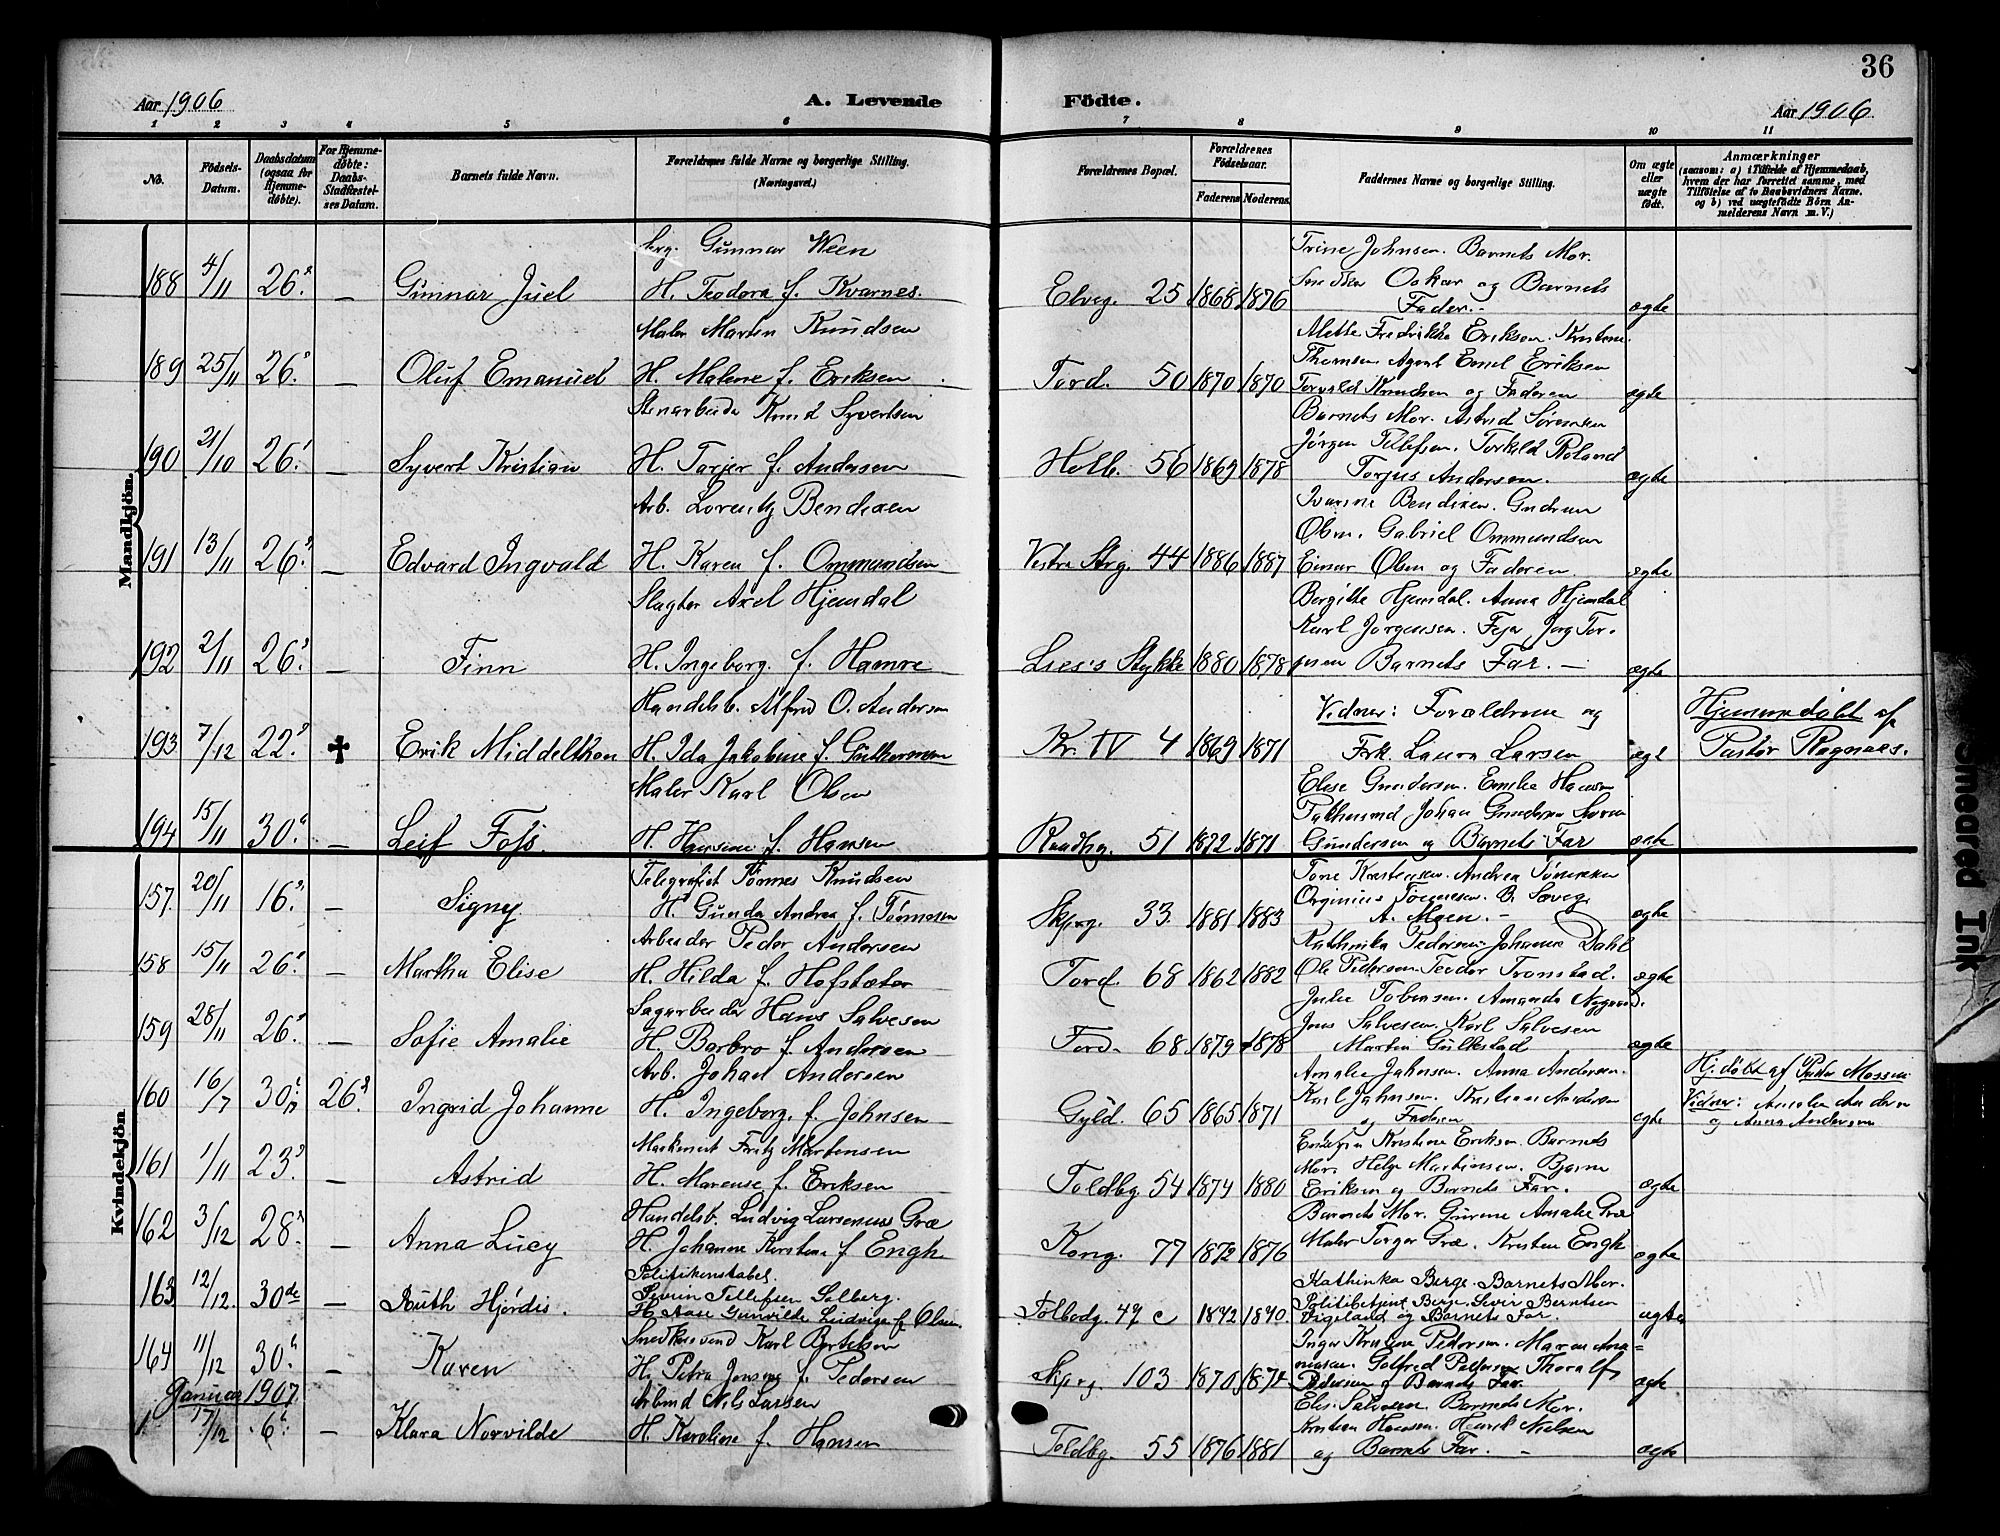 36
Aar 1906
A. Levende Födte.
Aar 1906
1 2 3 4 5 6 7 8 9 10 11
No.
Födsels-Datum.
Daabsdatum (ogsaa for Hjemme-døbte).
For Hjemme-døbte: Daabs-Stadfæstel-ses Datum.
Barnets fulde Navn.
Forældrenes fulde Navne og borgerlige Stilling. (Næringsvei.)
Forældrenes Bopæl.
Forældrenes Födselsaar.
Faderens Moderens.
Faddernes Navne og borgerlige Stilling.
Om ægte eller uægte födt.
Anmærkninger
(saasom: a) i Tilfælde af Hjemmedaab, hvem der har forrettet samme, med Tilföielse af to Daabsvidners Navne. og b) ved uægtefödte Börn An-melderens Navn m. V.)
Mandkjön.
Gunnar Ween
Trine Johnsen. Barnets Mor.
188 4/11 26. — Gunnar Juel H. Teodora f. Kvarnes. Elveg. 25 1868 1876 Oskar og Barnets Fader. — ægte
Maler Martin Knudsen
Mette Fredrikke Eriksen. Kristene
Thomsen. Agent Emil Eriksen
189 25/11 26. — Oluf Emanuel H. Malene f. Eriksen Tord. 50 1870 1870 Torvald Knudsen og Faderen ægte
Stenarbeider Knud Syvertsen
Barnets Mor. Astrid Sørensen
Jørgen Tellefsen. Torkild Roland
190 21/10 26. — Syvert Kristian H. Tarjer f. Andersen Holb. 56 1869 1878 Torjus Andersen. ægte
Arb. Lorentz Bendixen
Ivarine Bendixen. Gudrun
Olsen. Gabriel Ommundsen
191 13/11 26. — Edvard Ingvald H. Karen f. Ommundsen Vestre Strg. 44 1886 1887 Einar Olsen og Faderen ægte
Slagter Axel Hjemdal
Bergitte Hjemdal. Anna Hjemdal
Karl Jørgensen. Fejer Jørg Tor-
192 2/11 26. — Finn H. Ingeborg f. Hamre Lies's Stykke 1880 1878 Barnets Far. — ægte
Handelsb. Alfred O. Andersen
Vidner: Forældrene og
Hjemmedøbt af
193 7/12 22. ✝ Erik Middelthon H. Ida Jakobine f. Guttormsen Kr. IV 4 1869 1871 Frk. Laura Larsen ægt Pastor Ragnaes.
Maler Karl Olsen
Elise Gundersen. Emilie Hansen
Johan Gundersen
194 15/11 30. — Leif Foss. H. Hansine f. Hansen Raadhg. 51 1872 1871 Gundersen og Barnets Far ægte
Kvindekjön
Telegrafist Tønnes Knudsen
Tone Kristensen. Andrea Tønnesen
157. 20/11 16. — Signy H. Gunda Andrea f. Tønnesen Skjerg. 33 1881 1883 A. Moen. — ægte
Arbeider Peder Andersen
Kathinka Pedersen. Johanna Dahl
158 15/11 26. — Martha Elise H. Hilda f. Hofstæter Tord. 68 1862 1882 Ole Pedersen. Teodor Tronstad. ægte
Sagarbeider Hans Salvesen
Julie Tobiassen. Amanda Nygaard.
Jens Salvesen. Karl Salvesen
159 28/11 26. — Sofie Amalie H. Barbro f. Andersen Tord. 68 1879 1878 Martin Gulkstad ægte
Arb. Johan Andersen
Amalie Johnsen. Anna Andersen.
Hj. døbt af Pastor Mossin
160 16/7 30. 26. Ingrid Johanne H. Ingeborg f. Johnsen Gyld. 65 1865 1871 Karl Johnsen. Kristian Andersen og Faderen ægte
Vidner: Amalie Andersen og Anna Andersen
Maskinist Fritz Martensen
Kristine Eriksen. Barnets
161 1/11 23. — Astrid H. Marense f. Eriksen Toldbg. 54 1874 1880 Mor. Helge Martinsen. Bjarne Eriksen og Barnets Far. ægte
Handelsb. Ludvig Larsenius Græ
Barnets Mor. Gurene Amalie Græ
162 3/12 28. — Anna Lucy H. Johanne Kirstine f. Engh Kong. 77 1872 1876 Maler Torger Græ. Kristen Engh ægte
Politikonstabel.
Severin Tellefsen Solberg.
Kathinka Berge. Barnets Mor.
163 12/12. 30de — Ruth Hjørdis. H. Aase Gunvilde Ludvige f. Olsen. Tolbodg. 49 c 1842 1840. Politibetjent Berge. Sevir Berntsen Vigeland og Barnets Far. ægte
Snedkersvend Karl Bertelsen
Inger Kristine Pedersen. Maren Ana-
164 11/12 30. — Karen H. Petra Jensine f. Pedersen Skjerg. 103 1870 1872 Gotfred Pedersen Thoralf Pedersen og Barnets Far. ægte
Januar 1907.
Arbmd Nils Larsen
Elis. Salvesen Barnets Mor.
1 17/12 6. — Klara Norvilde H. Karoline f. Hansen Toldbg. 55 1876 1881 Kristian Hansen. Henrik Nielsen og Barnets Far. — ægte
Smeared Ink